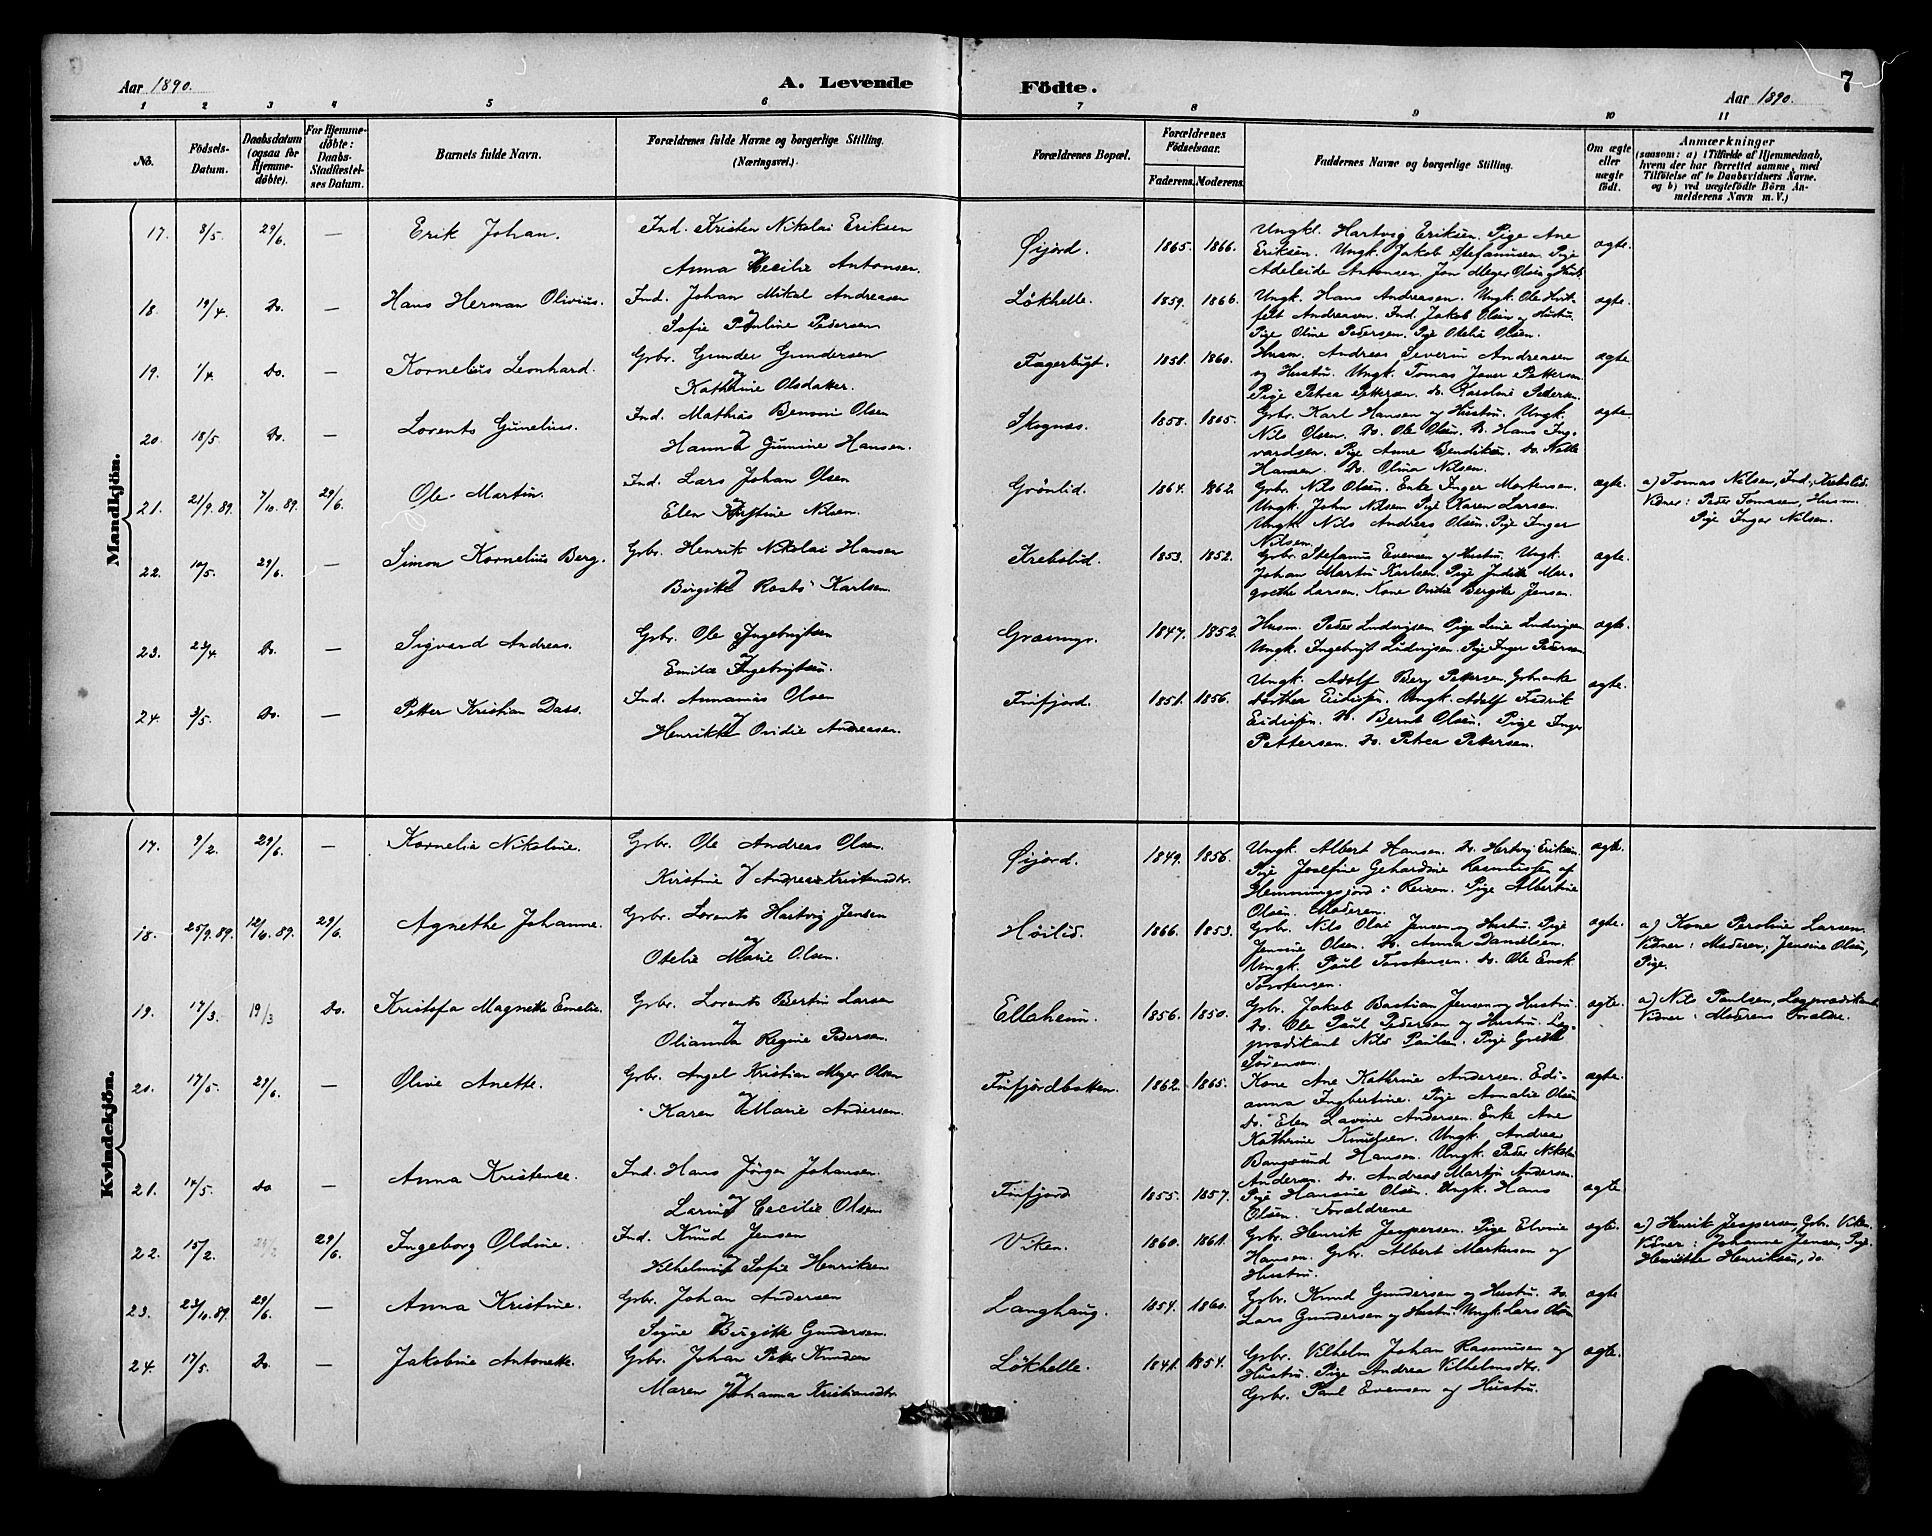 Aar 1890.
A. Levende
Födte.
7
Aar 1890.
1 2 3 4 5 6 7 8 9 10 11
No.
Födsels-Datum.
Daabsdatum (ogsaa for Hjemme-døbte).
For Hjemme-døbte: Daabs-Stadfæstel-ses Datum.
Barnets fulde Navn.
Forældrenes fulde Navne og borgerlige Stilling. (Næringsvei.)
Forældrenes Bopæl.
Forældrenes Födselsaar.
Faderens. Moderens.
Faddernes Navne og borgerlige Stilling.
Om ægte eller uægte födt.
Anmærkninger
(saasom: a) i Tilfælde af Hjemmedaab,
hvem der har forrettet samme, med
Tilföielse af to Daabsvidners Navne,
og b) ved uægtefödte Börn An-
melderens Navn m. V.)
Mandkjön.
17. 8/5. 29/6. — Erik Johan. Ind. Kristen Nikolai Eriksen
og Anna Cecilie Antonsen. Øijord. 1865. 1866. ægte.
Ungk. Hartvig Eriksen. Pige Ane
Eriksen. Ungk. Jakob Stefanusen Pige
Adeleide Antonsen. Jon Meyer Olsen og Hust.
18. 19/4. Do. — Hans Herman Olivius. Ind. Johan Mikal Andreasen
og Sofie Pauline Pedersen Løkhelle. 1859. 1866. ægte.
Ungk. Hans Andreasen. Ungk. Ole Hvit-
felt Andreasen. Ind. Jakob Olsen og Hustru.
Pige Oline Pedersen. Pige Otelie Olsen.
19. 1/4. Do. — Kornelius Leonhard. Grbr. Gunder Gundersen
og Kathrine Olsdatter. Fagerbugt. 1851. 1860. ægte
Husm. Andreas Severin Andreasen
og Hustru. Ungk. Tomas Pettersen.
Pige Petrea Pettersen. Do. Karoline Pedersen.
20. 18/5. Do. — Lorents Gunelius. Ind. Mathias Benoni Olsen
og Hanna Gurine Hansen. Skognæs. 1858. 1865. ægte
Grbr. Karl Hansen og Hustru. Ungk.
Nils Olsen. Do. Ole Olsen. Do. Hans Ing-
vardsen. Pige Anne Bendiksen. Do. Nille
Hansen. Do. Olina Nilsen.
21. 21/9.89. 7/10.89. 29/6. Ole Martin. Ind. Lars Johan Olsen
og Elen Kristine Nilsen. Grønlid. 1864. 1862. ægte.
Grbr. Nils Olsen. Enke Inger Mortensen.
Ungk. John Nilsen Pige Karen Larsen.
Ungk. Nils Andreas Olsen. Pige Inger
Nilsen.
a) Tomas Nilsen, Ind., Krebslid.
Vidner: Peder Tomasen, Husm.
Pige Inger Nilsen.
22. 10/5. 29/6. — Simon Kornelius Berg. Grbr. Henrik Nikolai Hansen
og Birgitte Karlsen. Krebslid. 1853. 1852. ægte.
Grbr. Stefanus Evensen og Hustru. Ungk.
Johan Martin Karlsen. Pige Judith Mar-
grethe Larsen. Kone Ovidie Bergitte Jensen.
23. 23/4. Do. — Sigvard Andreas. Grbr. Ole Ingebrigtsen
og Emilie Ingebrigtsen. Græsmyr. 1847. 1852. ægte.
Husm. Peder Ludvigsen. Pige Lene Ludvigsen
Ungk. Ingebrigt Ludvigsen. Pige Inger Petersen
24. 3/5. Do. — Petter Kristian Dass. Ind. Annanias Olsen
og Henrikke Ovidie Andreasen. Finfjord. 1851. 1856. ægte.
Ungk. Adolf Berg Petersen, Grbr.enke
Dorthea Eidissen. Ungk. Adolf Fredrik
Eidissen. Do. Bernt Olsen. Pige Inger
Pettersen. Do. Petrea Pettersen.
Kvindekjön.
17. 9/2. 29/6. — Kornelia Nikoline. Grbr. Ole Andreas Olsen.
og Kirstine Andrea Kristensdtr. Øijord. 1849. 1856. ægte.
Ungk. Albert Hansen. Do. Hertvig Eriksen
Pige Josefine Gehardine Rasmussen af
Hemmingsjord i Reisen. Pige Albertine
Olsen. Moderen.
18. 25/9.89. 12/10.89. 29/6. Agnethe Johanne. Grbr. Lorents Hartvig Jensen
og Otelie Marie Olsen. Høilid. 1866. 1853. ægte.
Grbr. Nils Olai Jensen og Hustru. Pige
Jensine Olsen. Do. Anna Danielsen.
Ungk. Paul Torstensen. Do. Ole Enok
Torstensen.
a) Kone Peroline Larsen.
Vidner: Moderen, Jensine Olsen,
Pige.
19. 17/3. 19/3 Do. Kristofa Magnette Emelie. Grbr. Lorents Bertin Larsen
og Olianna Regine Pedersen. Ellaheim. 1856. 1850. ægte.
Grbr. Jakob Bastian Jensen og Hustru.
Do. Ole Paul Pedersen og Hustru. Læg-
prædikant Nils Paulsen. Pige Grethe
Sørensen.
a) Nils Paulsen, Lægprædikant
Vidner: Moderens Forældre.
20. 17/5. 29/6. — Olive Anette. Grbr. Angel Kristian Meyer Olsen
og Karen Marie Andersen. Finfjordbotten. 1862. 1865. ægte.
Kone Ane Kathrine Andersen. Edi-
anna Ingbertine. Pige Amalie Olsen
Do. Elen Lavine Andersen. Enke Ane
Kathrine Knudsen. Ungk. Andreas
Bangsund Hansen. Ungk. Peder Nikolai
Andersen. Do. Andreas Martin Andersen.
21. 14/5. Do — Anna Kristense. Ind. Hans Jörgen Johansen.
og Larine Cecilie Olsen Finfjord 1855. 1857. ægte.
Pige Hansine Olsen. Ungk. Hans
Olsen. Forældrene.
22. 15/2. 29/6. Ingeborg Oldine. Ind. Knud Jensen
og Vilhelmine Sofie Henriksen Viken. 1860. 1861. ægte.
Grbr. Henrik Jespersen. Pige Elvine
Hansen. Grbr. Albert Markusen og
Hustru.
a) Henrik Jespersen, Grbr. Viken.
Vidner: Johanne Jensen, Pige.
Henriette Henriksen, do.
23. 23/10.89. 29/6. — Anna Kristine. Grbr. Johan Andersen
og Signe Birgitte Gundersen. Langhaug. 1854. 1860. ægte
Grbr. Knud Gundersen og Hustru. Do.
Lars Gundersen og Hustru. Ungk. Lars Olsen
24. 17/5. Do. — Jakobine Antonette. Grbr. Johan Peter Knudsen
og Maren Johanna Kristiansdtr. Løkhelle. 1841. 1854. ægte.
Grbr. Vilhelm Johan Rasmusen og
Hustru. Pige Andrea Vilhelmsdtr.
Grbr. Paul Evensen og Hustru.